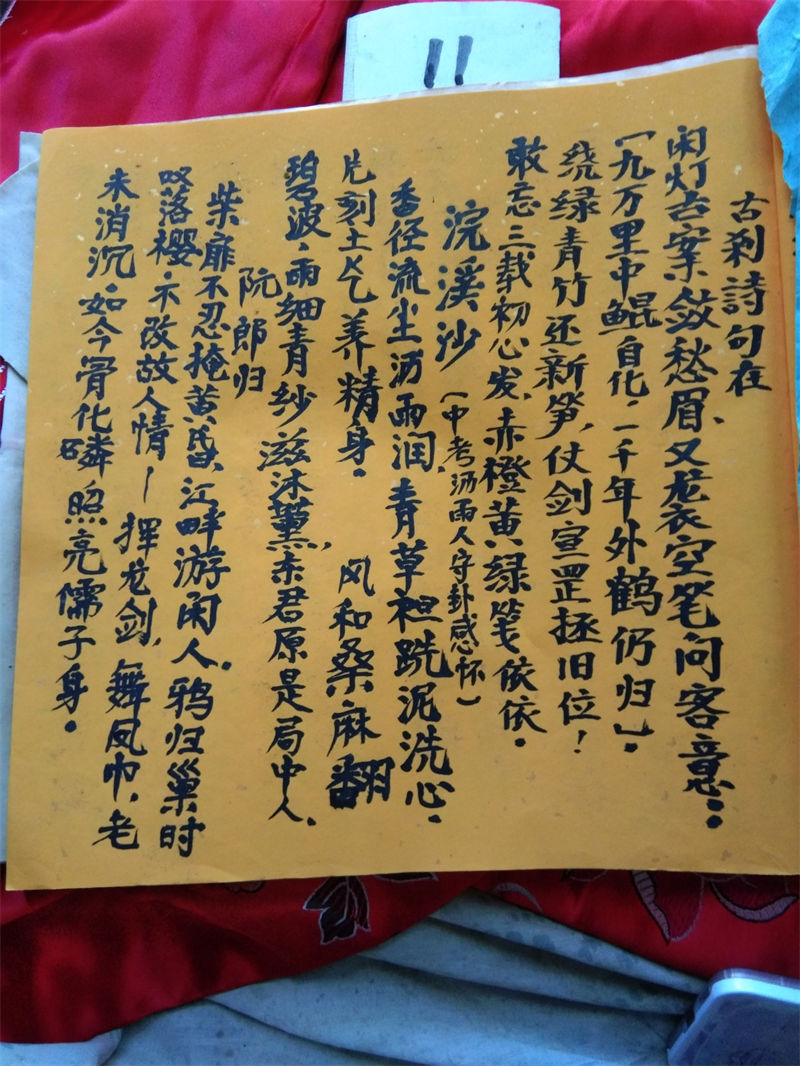 11
古刹詩句在
闲灯古案敛愁眉、又龙衣空笔问客意：
「九万里中鲲自化，一千年外鹤仍归」。
绕绿青竹还新笋，仗剑宣罡拯旧位！
敢忘三载初心发，赤橙黄绿笺依依。
浣溪沙（中考沥雨人守卦感怀）
香径流尘沥雨润，青草袒跣泥洗心，
片刻土气养精身。 风和桑麻翻
碧波，雨细青纱滋沐薰，东君原是局中人。
阮郎归
柴扉不忍掩黄昏，江畔游闲人。鸦归巢时
叹落樱，不改故人情～挥龙剑，舞凤巾，老
未消沉，如今骨化磷照亮儒子身。